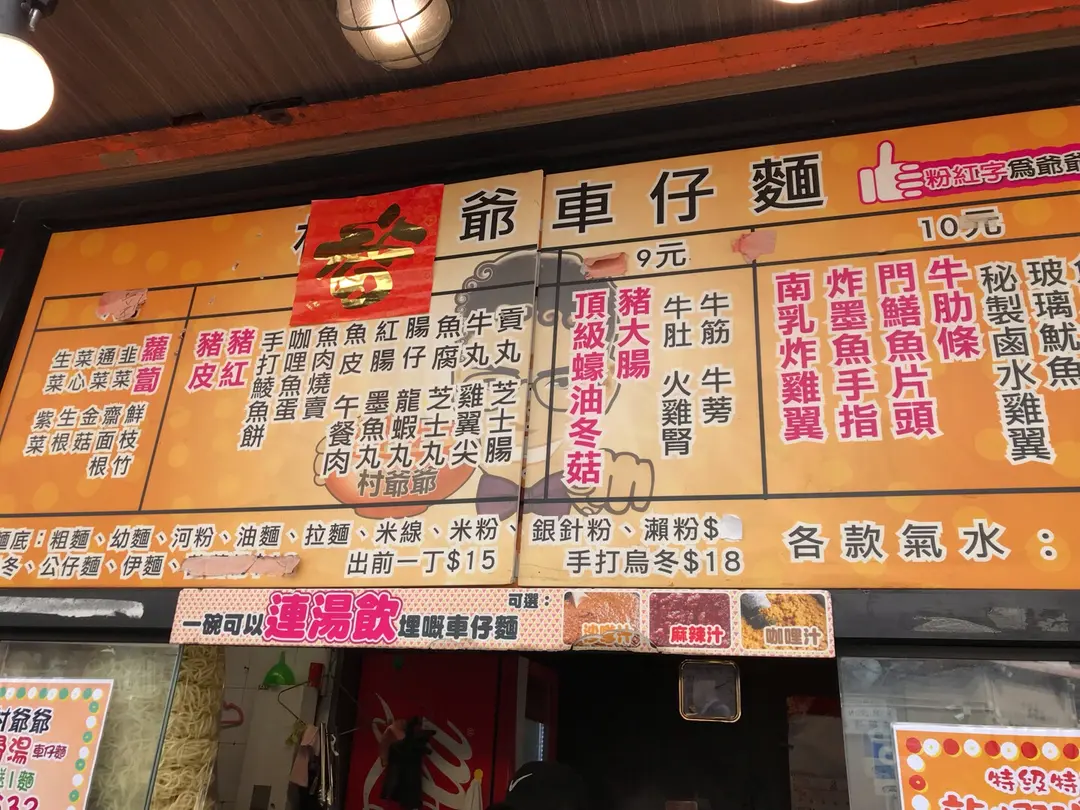 爺車仔麵
粉紅字為爺爺
蘿蔔
韭菜
通菜
菜心
生菜
鮮枝竹
齋面根
金菇
生根
紫菜
貢丸
牛丸
魚腐
腸仔
紅腸
魚皮
魚肉燒賣
咖哩魚蛋
手打鯪魚餅
豬紅
豬皮
芝士腸
雞翼尖
芝士丸
龍蝦丸
墨魚丸
午餐肉
村爺爺
9元
牛筋
牛肚
豬大腸
頂級蠔油冬菇
牛蒡
火雞腎
10元
玻璃魷魚
秘製鹵水雞翼
牛肋條
門鱔魚片頭
炸墨魚手指
南乳炸雞翼
麵底：粗麵、幼麵、河粉、油麵、拉麵、米線、米粉、銀針粉、瀨粉$
冬、公仔麵、伊麵、
出前一丁$15
手打烏冬$18
各款氣水：
一碗可以連湯飲埋嘅車仔麵
可選：
沙嗲汁
麻辣汁
咖哩汁
村爺爺
湯車仔麵
特級特